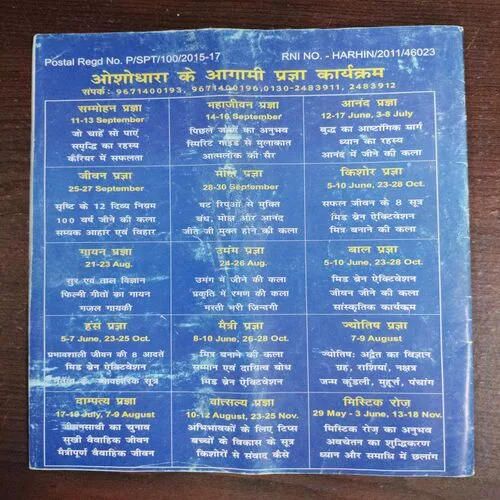 Postal Regd No. P/SPT/100/2015-17 RNI NO. - HARHIN/2011/46023
ओशोधारा के आगामी प्रज्ञा कार्यक्रम
संपर्क : 9671400193, 9671400196,0130-2483911, 2483912
सम्मोहन प्रज्ञा
11-13 September
जो चाहें सो पाएं
समृद्धि का रहस्य
कैरियर में सफलता
महाजीवन प्रज्ञा
14-16 September
पिछले जन्मों का अनुभव
स्पिरिट गाइड से मुलाकात
आत्मलोक की सैर
आनंद प्रज्ञा
12-17 June, 3-8 July
बुद्ध का आष्टांगिक मार्ग
ध्यान का रहस्य
आनंद में जीने की कला
जीवन प्रज्ञा
25-27 September
सृष्टि के 12 दिव्य नियम
100 वर्ष जीने की कला
सम्यक आहार एवं विहार
मोक्ष प्रज्ञा
28-30 September
षट रिपुओं से मुक्ति
बंध, मोक्ष और आनंद
जीते जी मुक्त होने की कला
किशोर प्रज्ञा
5-10 June, 23-28 Oct.
सफल जीवन के 8 सूत्र
मिड ब्रेन ऐक्टिवेशन
मित्र बनाने की कला
गायन प्रज्ञा
21-23 Aug.
सुर एवं ताल विज्ञान
फिल्मी गीतों का गायन
गजल गायकी
उमंग प्रज्ञा
24-26 Aug.
उमंग में जीने की कला
प्रकृति में रमण की कला
मस्ती भरी जिन्दगी
बाल प्रज्ञा
5-10 June, 23-28 Oct.
मिड ब्रेन ऐक्टिवेशन
जीवन जीने की कला
सांस्कृतिक कार्यक्रम
हंस प्रज्ञा
5-7 June, 23-25 Oct.
प्रभावशाली जीवन की 8 आदतें
मिड ब्रेन ऐक्टिवेशन
सूत्र
मैत्री प्रज्ञा
8-10 June, 26-28 Oct.
मित्र बनाने की कला
सम्मान एवं दायित्व बोध
मिड ब्रेन ऐक्टिवेशन
ज्योतिष प्रज्ञा
7-9 August
ज्योतिष: अद्वैत का विज्ञान
ग्रह, राशियां, नक्षत्र
जन्म कुंडली, मुहूर्त्त, पंचांग
दाम्पत्य प्रज्ञा
17-19 July, 7-9 August
जीवनसाथी का चुनाव
सुखी वैवाहिक जीवन
मैत्रीपूर्ण वैवाहिक जीवन
वात्सल्य प्रज्ञा
10-12 August, 23-25 Nov.
अभिभावकों के लिए टिप्स
बच्चों के विकास के सूत्र
किशोरों से संवाद कैसे
मिस्टिक रोज़
29 May - 3 June, 13-18 Nov.
मिस्टिक रोज़ का अनुभव
अवचेतन का शुद्धिकरण
ध्यान और समाधि में छलांग